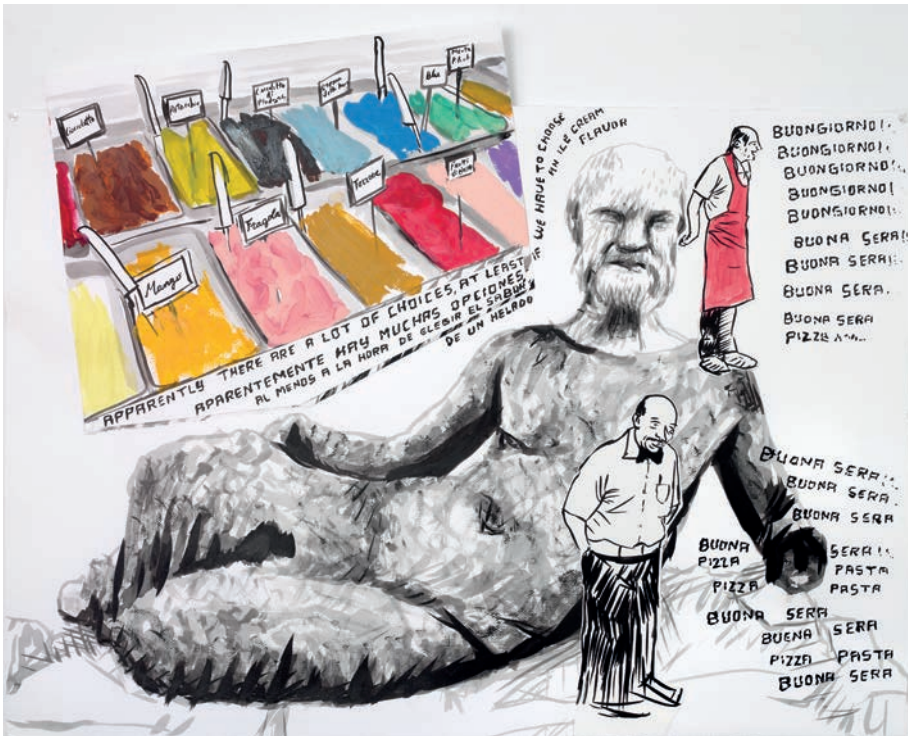 Pistachio
Blu
Mango
Fragola
Torrone
APPARENTLY THERE ARE A LOT OF CHOICES, AT LEAST IF
WE HAVE TO CHOOSE
AN ICE CREAM
FLAVOR
APARENTEMENTE HAY MUCHAS OPCIONES,
AL MENOS A LA HORA DE ELEGIR EL SABOR
DE UN HELADO
BUONGIORNO!..
BUONGIORNO!..
BUONGIORNO!..
BUONGIORNO!
BUONGIORNO!..
BUONA SERA!!
BUONA SERA!!..
BUONA SERA..
BUONA SERA
PIZZA
BUONA SERA!!..
BUONA SERA.
BUONA SERA
BUONA SERA!!..
PIZZA PASTA
PIZZA PASTA
BUONA SERA
BUENA SERA
PIZZA PASTA
BUONA SERA